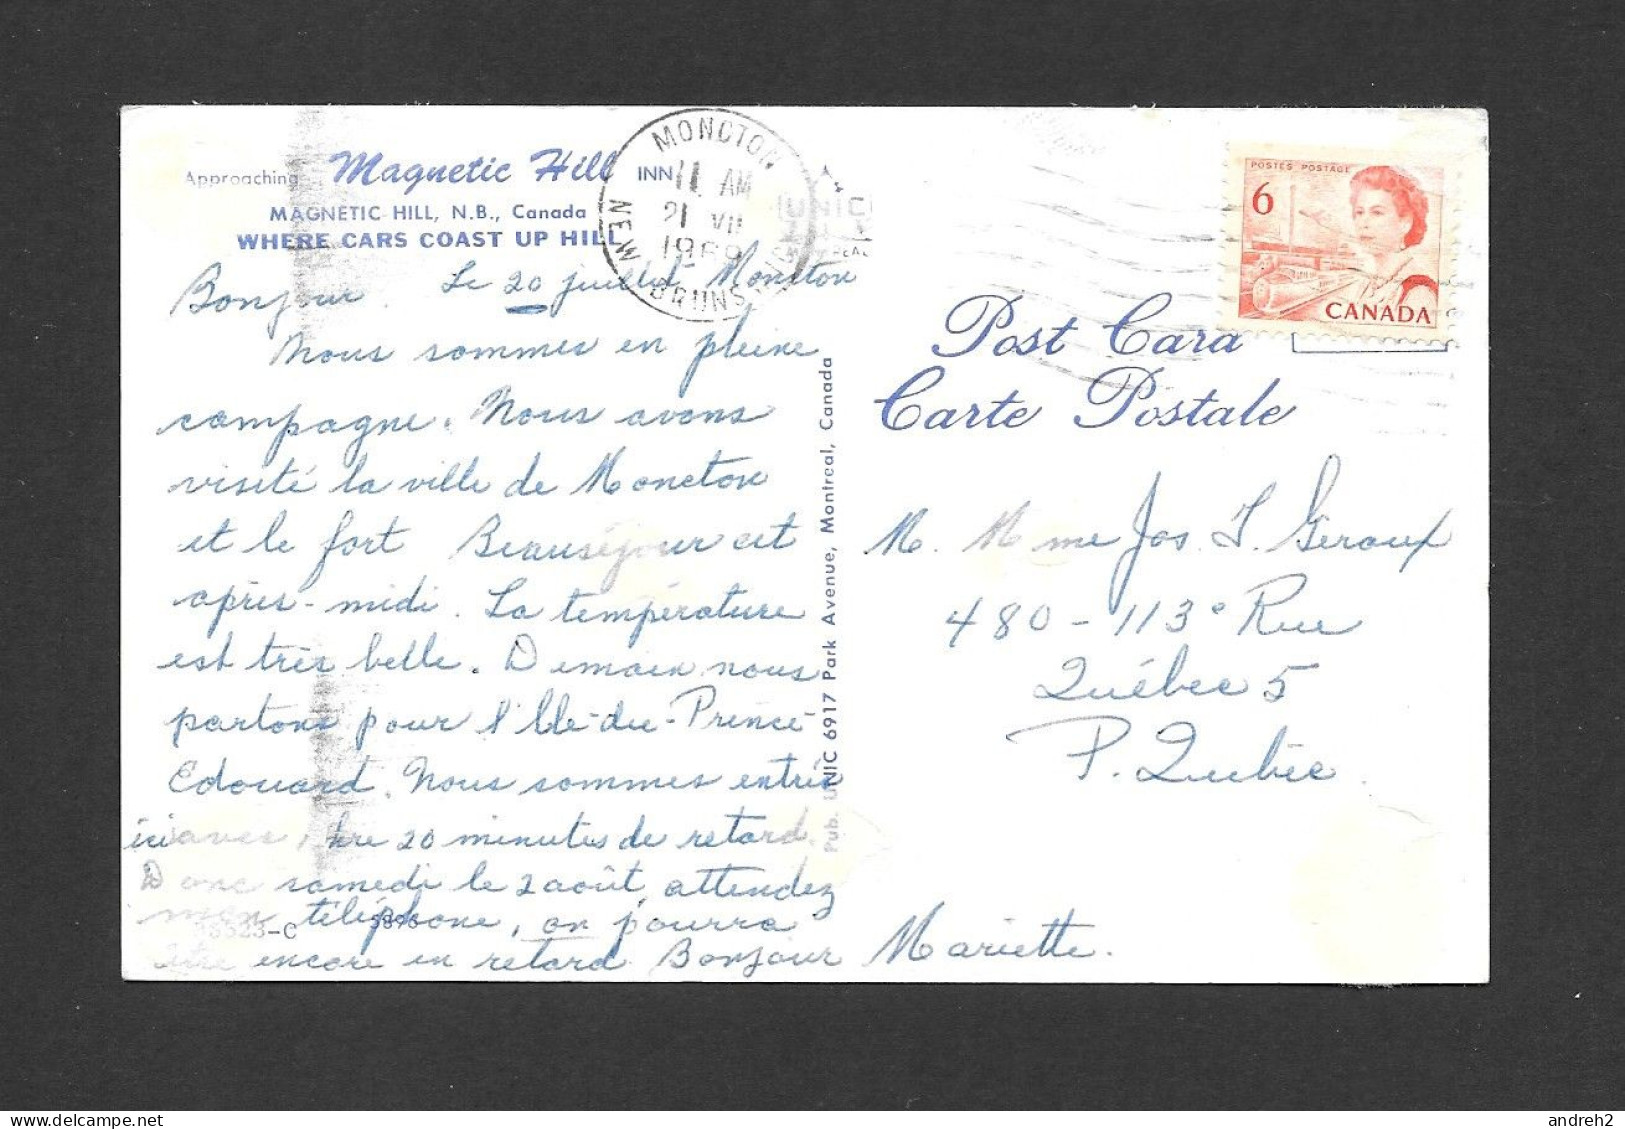 Approaching Magnetic Hill INN
MAGNETIC HILL, N.B., Canada
WHERE CARS COAST UP HILL
MONCTON
11 AM
21 VII
1969
NEW BRUNSWICK
Bonjour. Le 20 juillet Moncton
Nous sommes en pleine
campagne. Nous avons
visité la ville de Moncton
et le fort Beauséjour cet
après-midi. La température
est très belle. Demain nous
partons pour l'Ile-du-Prince-
Edouard. Nous sommes entrés
ici avec 1 hre 20 minutes de retard.
Donc samedi le 2 août, attendez
mon téléphone, on pourra
être encore en retard. Bonjour Mariette.
38523-C
Pub. UNIC 6917 Park Avenue, Montreal, Canada
POSTES POSTAGE
6
CANADA
Post Card
Carte Postale
M. Mme Jos. T. Giroux
480-113e Rue
Québec 5
P. Québec
andreh2